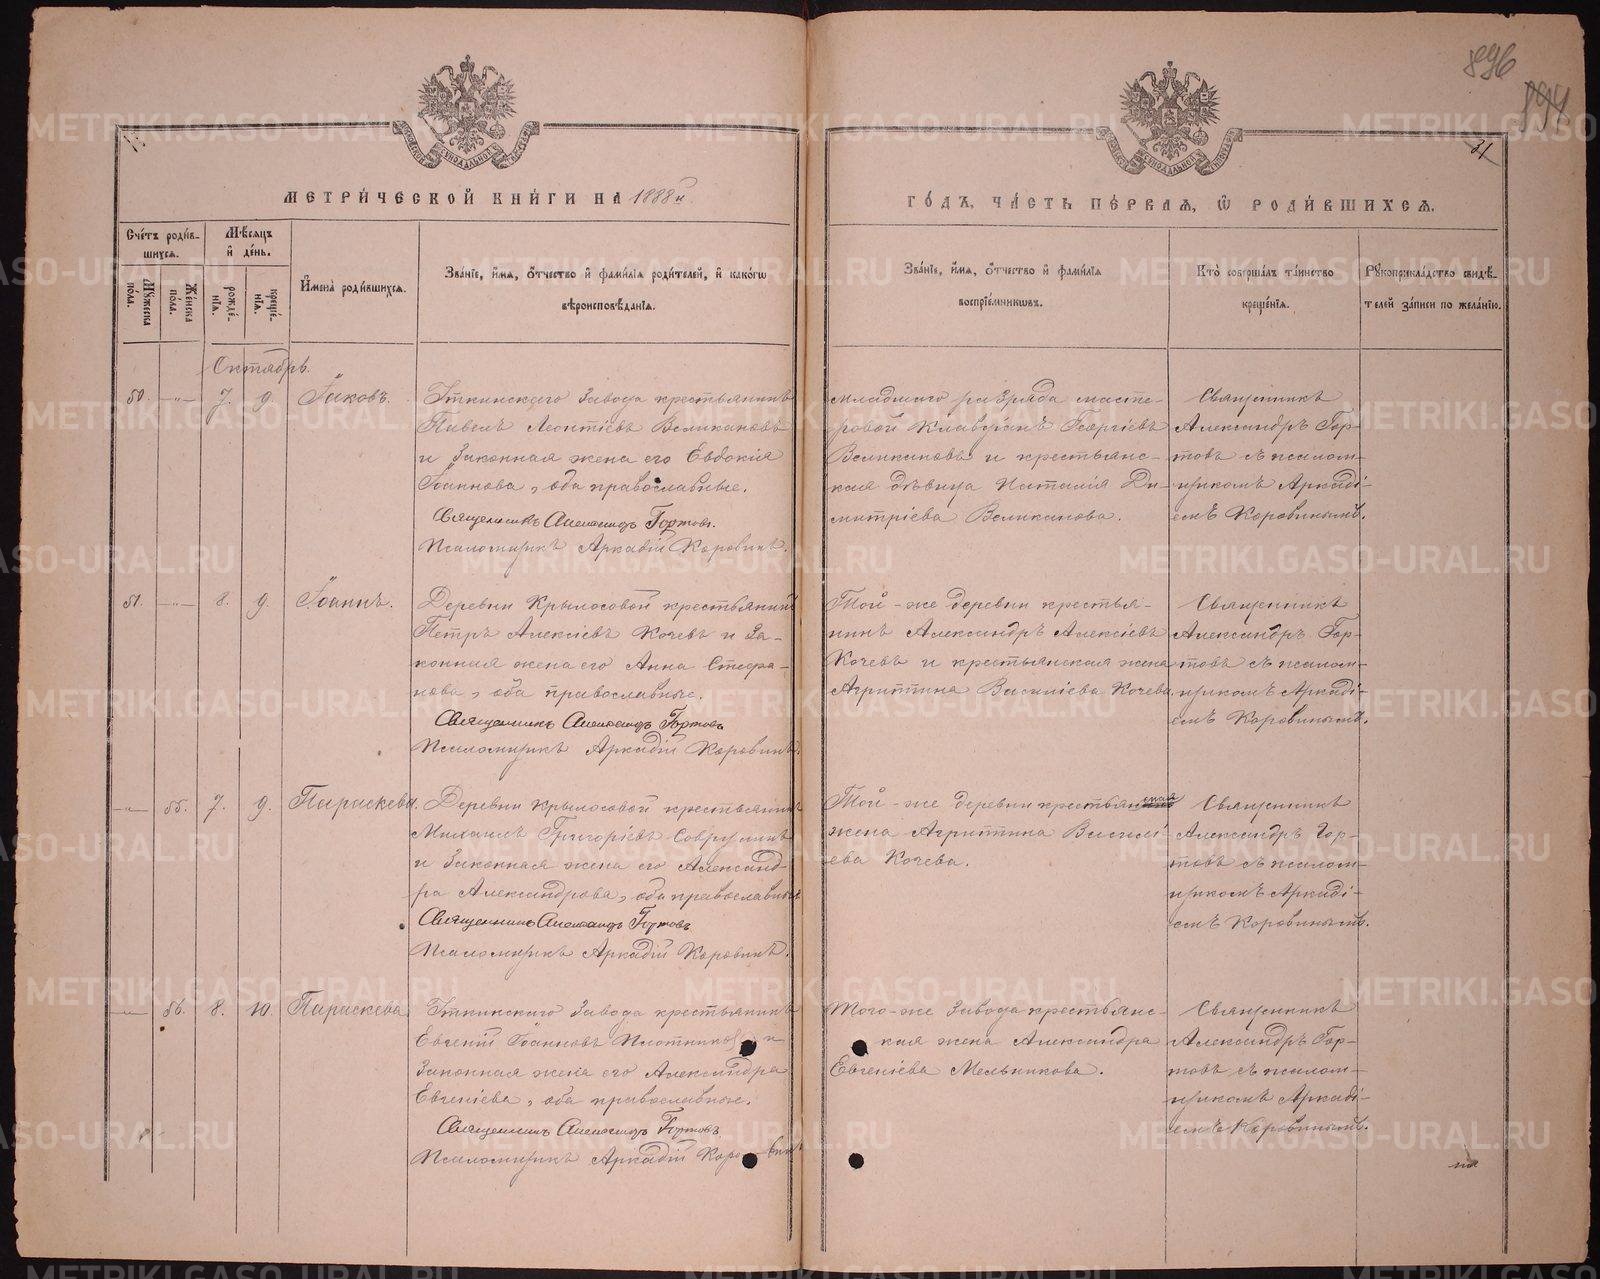 896
894
31
МЕТРИ́ЧЕСКОЙ КНИ́ГИ НА 1888й
ГО́ДЪ, ЧА́СТЬ ПЕ́РВАЯ, Ѡ РОДИ́ВШИХСЯ.
Сче́тъ роди́в-
шихся.
Му́жеска по́ла.
Же́нска по́ла.
Мѣ́сяцъ и́ де́нь.
рожде́-
нїя.
креще́-
нїя.
И́мена роди́вшихся.
Зва́нїе, и́мя, о́тчество и́ фами́лїя роди́телей, и́ како́гѡ
вѣроисповѣ́данїя.
Зва́нїе, и́мя, о́тчество и́ фами́лїя
воспрїе́мниковъ.
Кто̀ соверша́лъ та́инство
креще́нїя.
Рꙋкоприкла́дство свидѣ́-
телей за́писи по жела́нїю.
Октябрь.
50. —„— 7. 9. Іаковъ.
Уткинскаго Завода крестьянинъ
Павелъ Леонтіевъ Великановъ
и законная жена его Евдокія
Іоаннова, оба православные.
Священникъ Александръ Гортовъ.
Псаломщикъ Аркадій Коровинъ.
младшаго разряда масте-
ровой Клавдіанъ Георгіевъ
Великановъ и крестьянс-
кая дѣвица Наталія Ди-
митріева Великанова.
Священникъ
Александръ Гор-
товъ съ псалом-
щикомъ Аркаді-
емъ Коровинымъ.
51. —„— 8. 9. Іоаннъ.
Деревни Крылосовой крестьянинъ
Петръ Алексіевъ Кочевъ и за-
конная жена его Анна Стефа-
нова, оба православные.
Священникъ Александръ Гортовъ
Псаломщикъ Аркадій Коровинъ.
Той-же деревни крестья-
нинъ Александръ Алексіевъ
Кочевъ и крестьянская жена
Агриппина Василіева Кочева.
Священникъ
Александръ Гор-
товъ съ псалом-
щикомъ Аркаді-
емъ Коровинымъ.
—„— 55. 7. 9. Параскева.
Деревни Крылосовой крестьянинъ
Михаилъ Григоріевъ
и законная жена его Александ-
ра Александрова, оба православные
Священникъ Александръ Гортовъ
Псаломщикъ Аркадій Коровинъ.
Той-же деревни крестьянская
жена Агриппина Василі-
ева Кочева.
Священникъ
Александръ Гор-
товъ съ псалом-
щикомъ Аркаді-
емъ Коровинымъ.
—„— 56. 8. 10. Параскева
Уткинскаго Завода крестьянинъ
Евгеній Іоанновъ Плотниковъ и
законная жена его Александра
Евгеніева, оба православные.
Священникъ Александръ Гортовъ.
Псаломщикъ Аркадій Коровинъ
Того-же Завода крестьянс-
кая жена Александра
Евгеніева Мельникова.
Священникъ
Александръ Гор-
товъ съ псалом-
щикомъ Аркаді-
емъ Коровинымъ.
METRIKI.GASO-URAL.RU